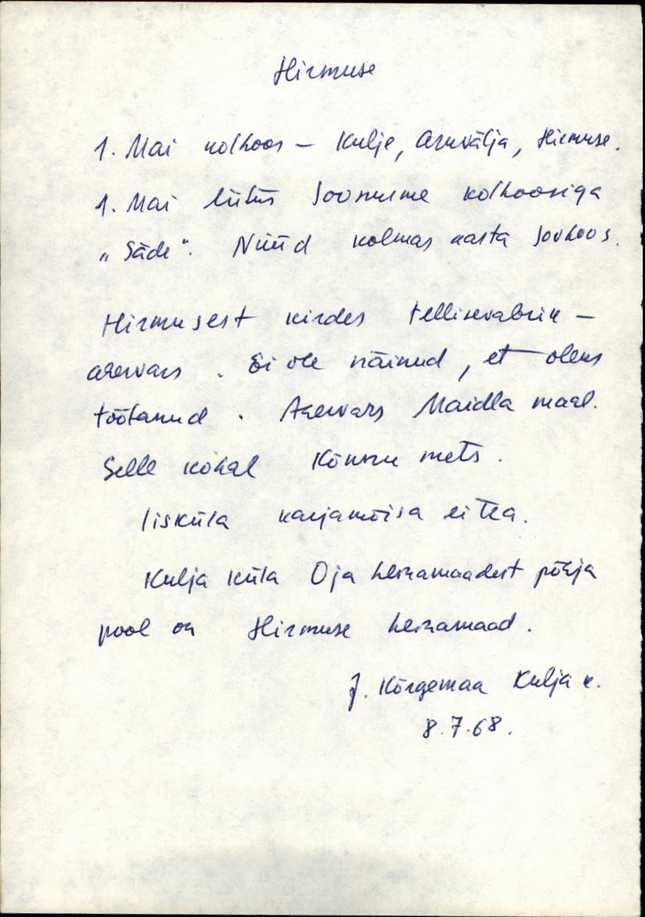 Hirmuse
1. Mai kolhoos – Kulje, Aruvälja, Hirmuse.
1. Mai liitus Soonurme kolhoosiga
„Säde". Nüüd kolmas aasta sovhoos.
Hirmusest kirdes tellisevabrik –
aservars. Ei ole näinud, et oleks
töötanud. Aservars Maidla maal.
Selle kohal Kõnnu mets.
Iisküla karjamõisa ei tea.
Kulja küla Oja heinamaadest põhja
pool on Hirmuse heinamaad.
J. Kõrgemaa Kulja k.
8.7.68.